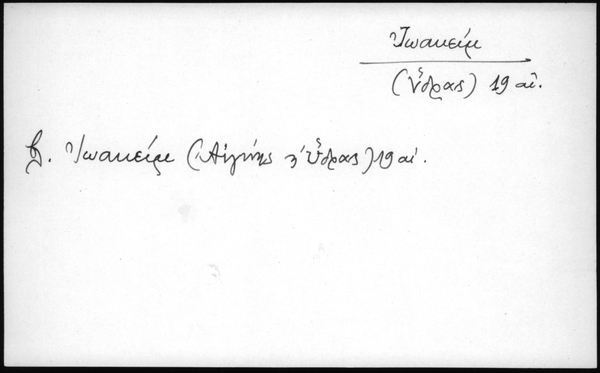 Ἰωακείμ
(Ὕδρας) 19 αἰ.
β. Ἰωακείμ (Αἰγίνης κ' Ὕδρας) 19 αἰ.